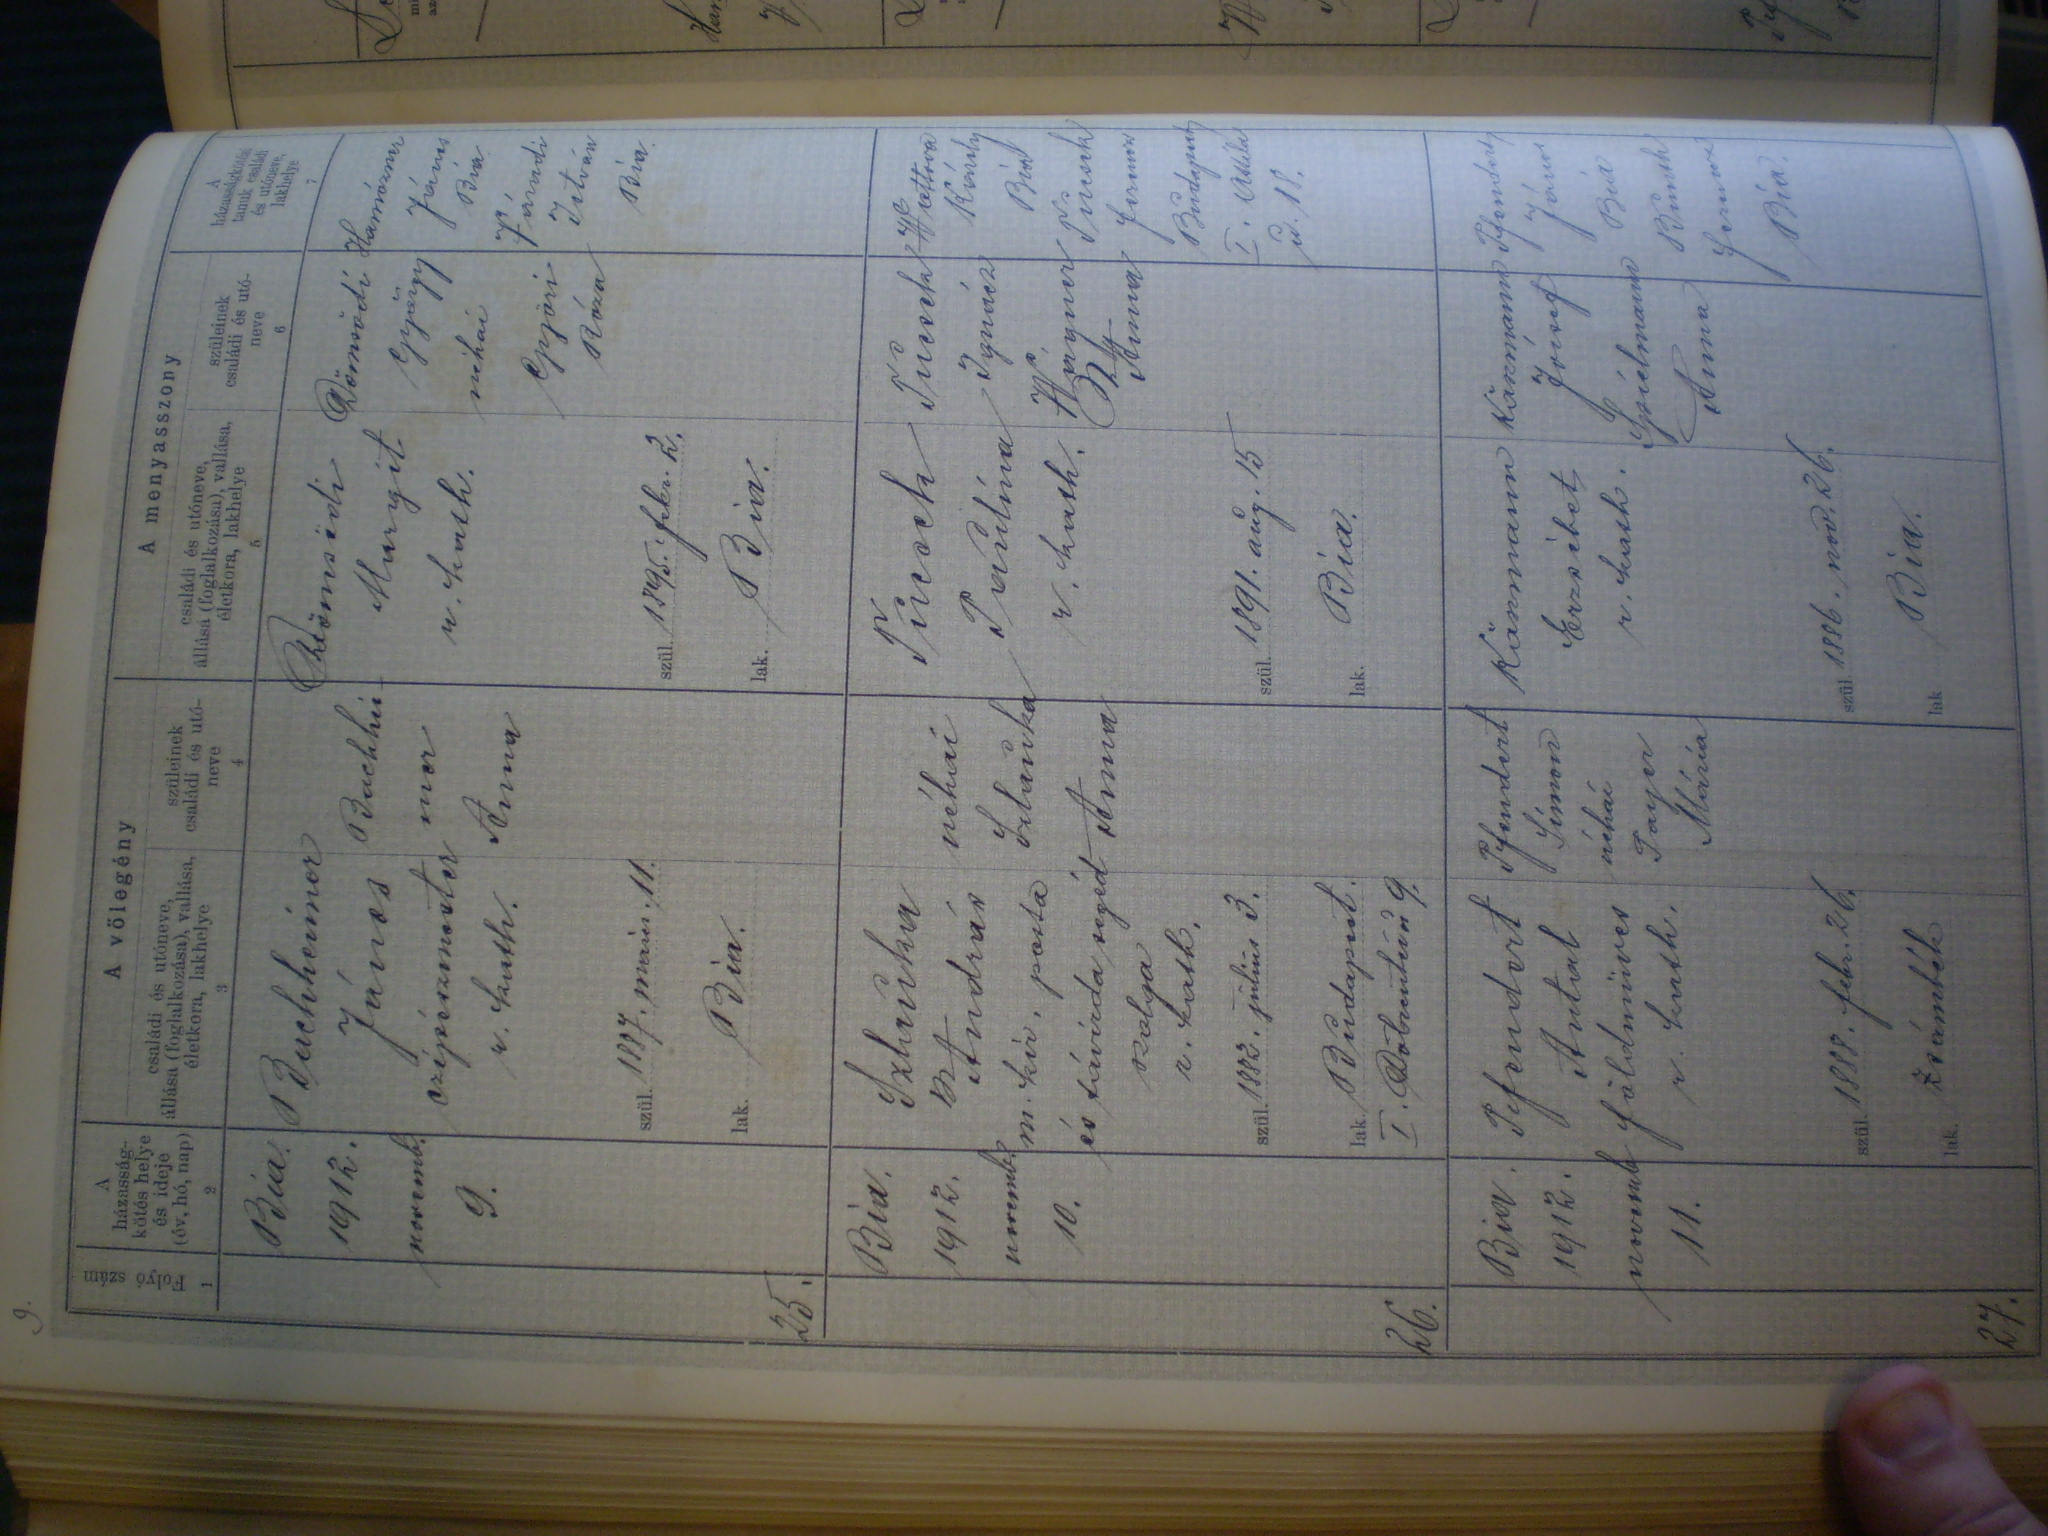 9.
Folyó szám
1
A
házasság-
kötés helye
és ideje
(év, hó, nap)
2
A vőlegény
családi és utóneve,
állása (foglalkozása), vallása,
életkora, lakhelye
3
szüleinek
családi és utó-
neve
4
A menyasszony
családi és utóneve,
állása (foglalkozása), vallása,
életkora, lakhelye
5
szüleinek
családi és utó-
neve
6
A
házasságkötési
tanuk családi
és utóneve,
lakhelye
7
25.
Bia.
1912.
novemb.
9.
Buchheimer
János
r. kath.
szül. 1887. márc. 11.
lak. Bia.
Buchhei-
mer
Anna
Dömsödi
Margit
r. kath.
szül. 1895. febr. 2.
lak. Bia.
Dömsödi
György
néhai
Győri
Róza
János
Bia
Váradi
István
Bia.
26.
Bia.
1912.
novemb.
10.
Szlávka
András
m. kir. posta
és távirda segéd
szolga
r. kath.
szül. 1882. július 3.
lak. Budapest.
I. Döbrentei u 9.
néhai
Szlávka
Anna
Tucsek
Paulina
r. kath.
szül. 1891. aug. 15
lak. Bia.
Tucsek
Ignácz
Wágner
M.
Anna
Károly
Bia
Tucsek
Ferencz
Budapest
I. Attila
u. 18.
27.
Bia.
1912.
novemb
11.
Pfendert
Antal
földmíves
r. kath.
szül. 1888. febr. 26.
lak. Zsámbék
Pfendert
Simon
néhai
Payer
Mária
Käszmann
Erzsébet
r. kath.
szül. 1886. nov. 26.
lak Bia.
Käszmann
József
Spielmann
Anna
Pfendert
János
Bia
Ferencz
Bia.